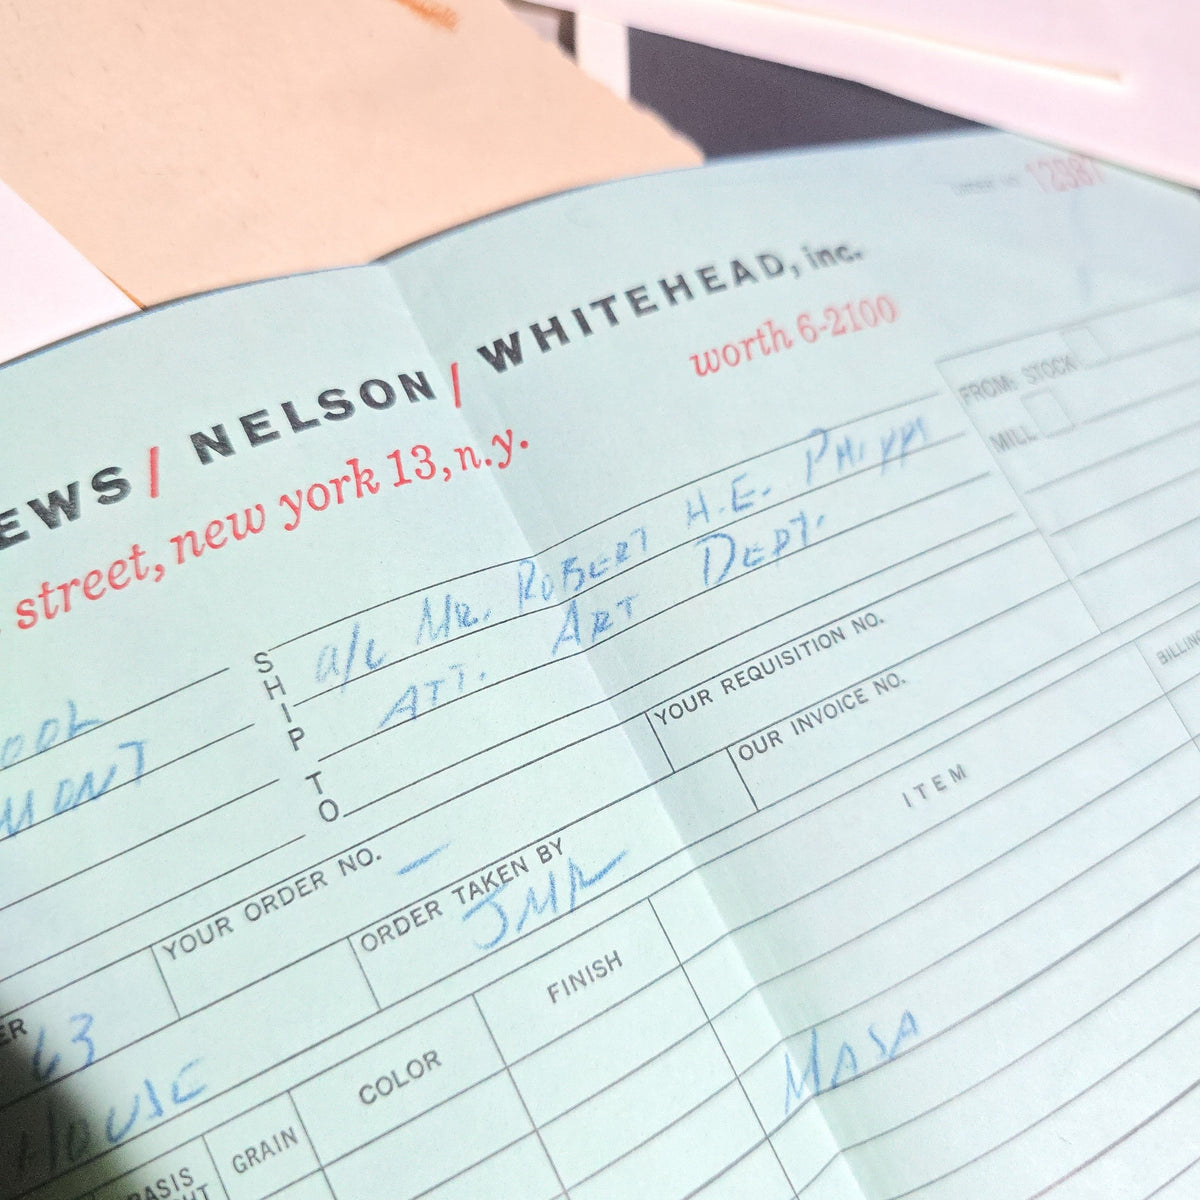 12987
EWS/ NELSON/ WHITEHEAD, inc.
street, new york 13, n.y.
worth 6-2100
FROM: STOCK
MILL
SHIP TO
a/c Mr. ROBERT H.E. PHIPPS
ATT. ART DEPT.
OOK
MONT
YOUR REQUISITION NO.
OUR INVOICE NO.
BILLIN
YOUR ORDER NO. —
ORDER TAKEN BY
JMR
ER
63
HOUSE
ITEM
BASIS
HT
GRAIN
COLOR
FINISH
MASA